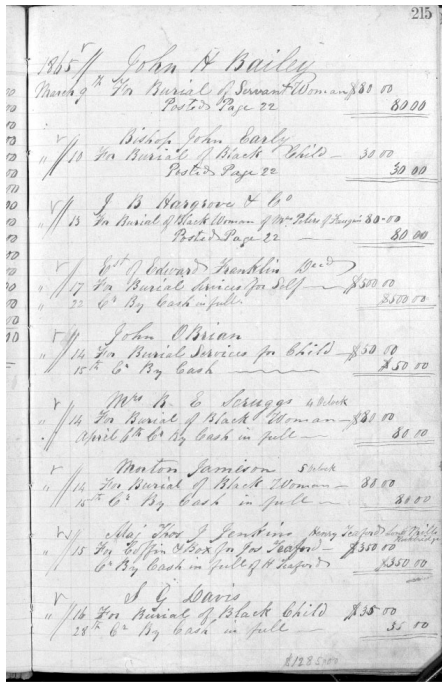 215
1865 John H Bailey
March 9th For Burial of Servant Woman $80 00
Posted Page 22 80 00
Bishop John Early
" 10 For Burial of Black Child — 30 00
Posted Page 22 30 00
J B Hargrove & Co
" 13 For Burial of Black Woman of Wm Peters of 80-00
Posted Page 22 — 80 00
Est of Edward Franklin Decd
" 17 For Burial Services for Self — $500 00
" 22 Cr By Cash in full. $500 00
John O.Brian
" 14 For Burial Services for Child — $50 00
15th Cr By Cash $50 00
Mrs R E Scruggs 4 Oclock
" 14 For Burial of Black Woman — $80 00
April 6th Cr By Cash in full — 80 00
Morton Jamison 5 Oclock
" 14 For Burial of Black Woman — 80 00
15th Cr By Cash in full — 80 00
Maj Thos J Jenkins Henry Teaford
" 15 For Coffin & Box for Jos Teaford — $350 00
Cr By Cash in full of H Teaford $350 00
S G Davis
" 16 For Burial of Black Child $35 00
28th Cr By Cash in full — 35 00
$1285.00